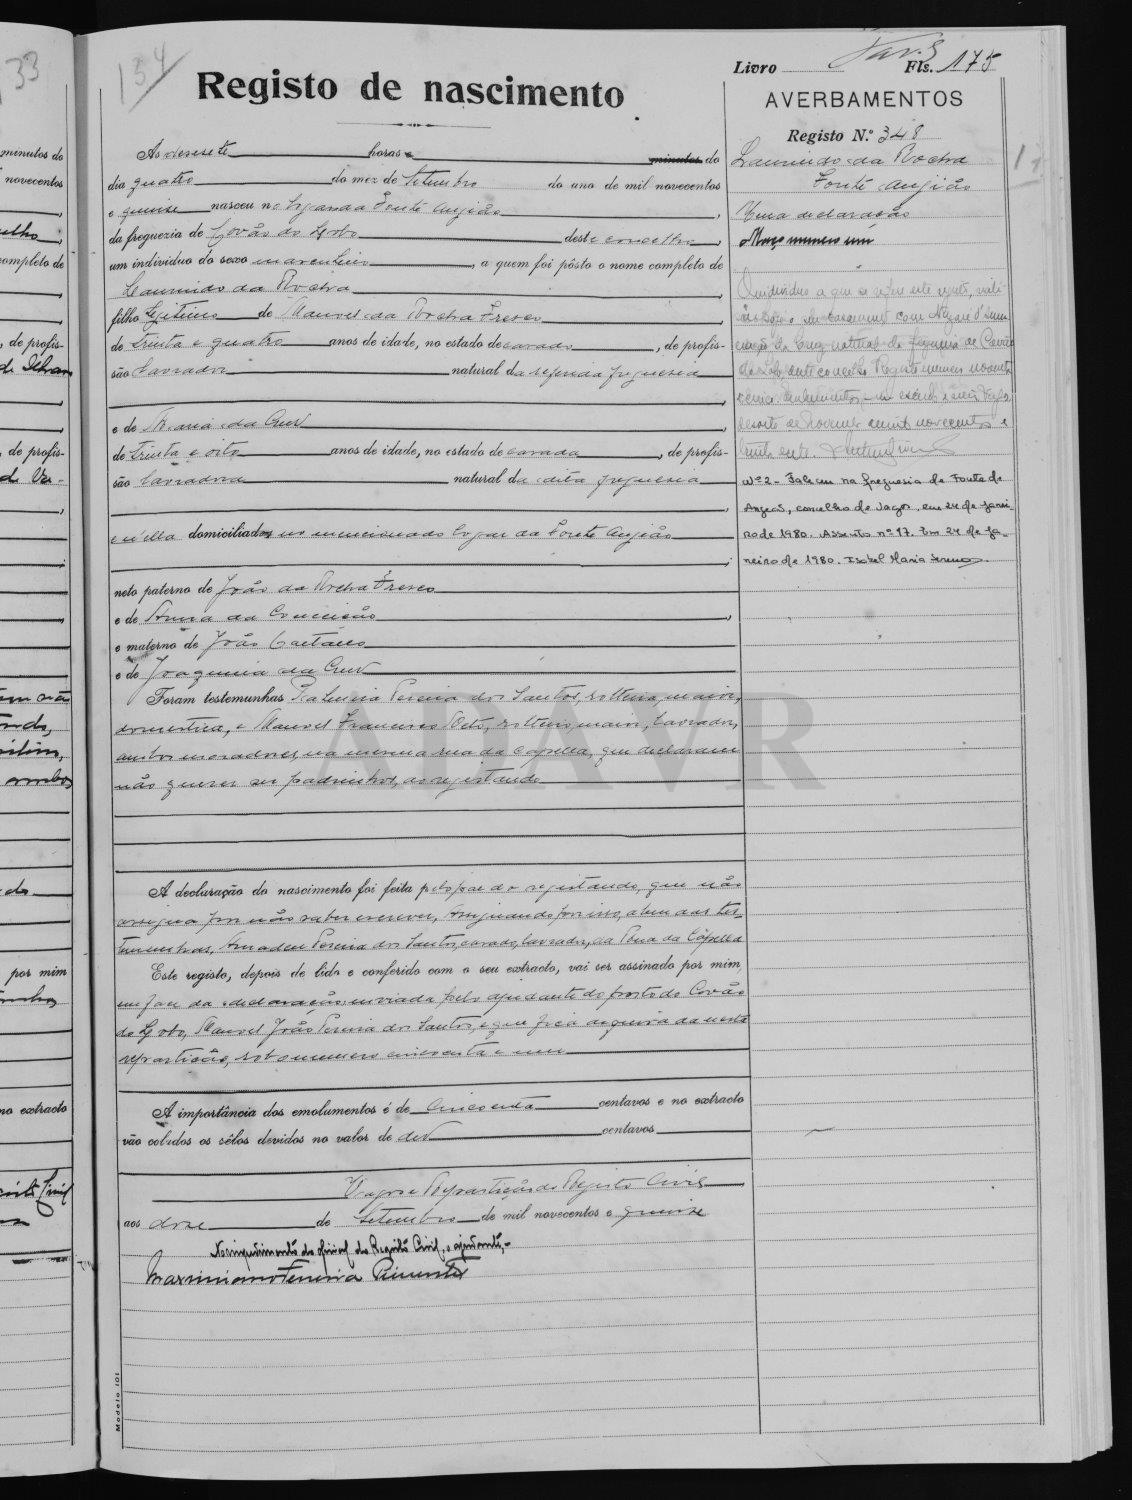 33
154
Nav. 3
Livro Fls. 175
Registo de nascimento
AVERBAMENTOS
Registo N.º 348
Laurindo da Rocha
Fonte Angião
Uma declaração
Maço numero um
As desesete horas e minutos do
dia quatro do mez de Setembro do ano de mil novecentos
e quinze nasceu no logar da Fonte Angião,
da freguezia de Covão do Lobo deste concelho,
um individuo do sexo masculino, a quem foi pôsto o nome completo de
Laurindo da Rocha
filho legitimo de Manoel da Rocha Fresco
de trinta e quatro anos de idade, no estado de casado, de profis-
são lavrador natural da referida freguesia
e de Maria da Cruz
de trinta e oito anos de idade, no estado de casada, de profis-
são lavradora natural da dita freguesia
e n'ella domiciliados no mencionado logar da Fonte Angião
neto paterno de João da Rocha Fresco
e de Anna da Conceição,
e materno de João Caetano
e de Joaquina da Cruz
Foram testemunhas Pereira dos Santos, solteira, maior,
domestica, e Manoel Francisco Neto, solteiro, maior, lavrador,
ambos moradores, na mesma rua da Capella, que declararam
não querer ser padrinhos, ao registando
A declaração do nascimento foi feita pelo pae do registando, que não
assigna por não saber escrever, assignando por isso, alem das tes-
temunhas, Amadeu Pereira dos Santos, casado, lavrador, da Rua da Capella
Este registo, depois de lido e conferido com o seu extracto, vai ser assinado por mim
em face da declaração enviada pelo ajudante do posto do Covão
do Lobo, Manoel João Pereira dos Santos, e que fica arquivada nesta
repartição, sob o numero cincoenta e um
A importância dos emolumentos é de cincoenta centavos e no extracto
vão colados os sêlos devidos no valor de dez centavos
Vagos e Repartição do Registo Civil
aos doze de Setembro de mil novecentos e quinze
No impedimento do oficial do Registo Civil, o ajudante,
Maximiano Ferreira Pimentel
O individuo a que se refere este registo,
casamento com Nazaré d'Assun
ção da Cruz natural da freguesia de Covão
do Lobo, deste concelho Registo numero noventa
Nº 2 - Faleceu na freguesia de Fonte de
Angeão, concelho de Vagos, em 24 de janei-
ro de 1980. Assento nº 17. Em 24 de ja-
neiro de 1980. Isabel Maria
ADAVR
Modelo 101
minutos do
novecentos
completo de
, de profis-
, de profis-
por mim
no extracto